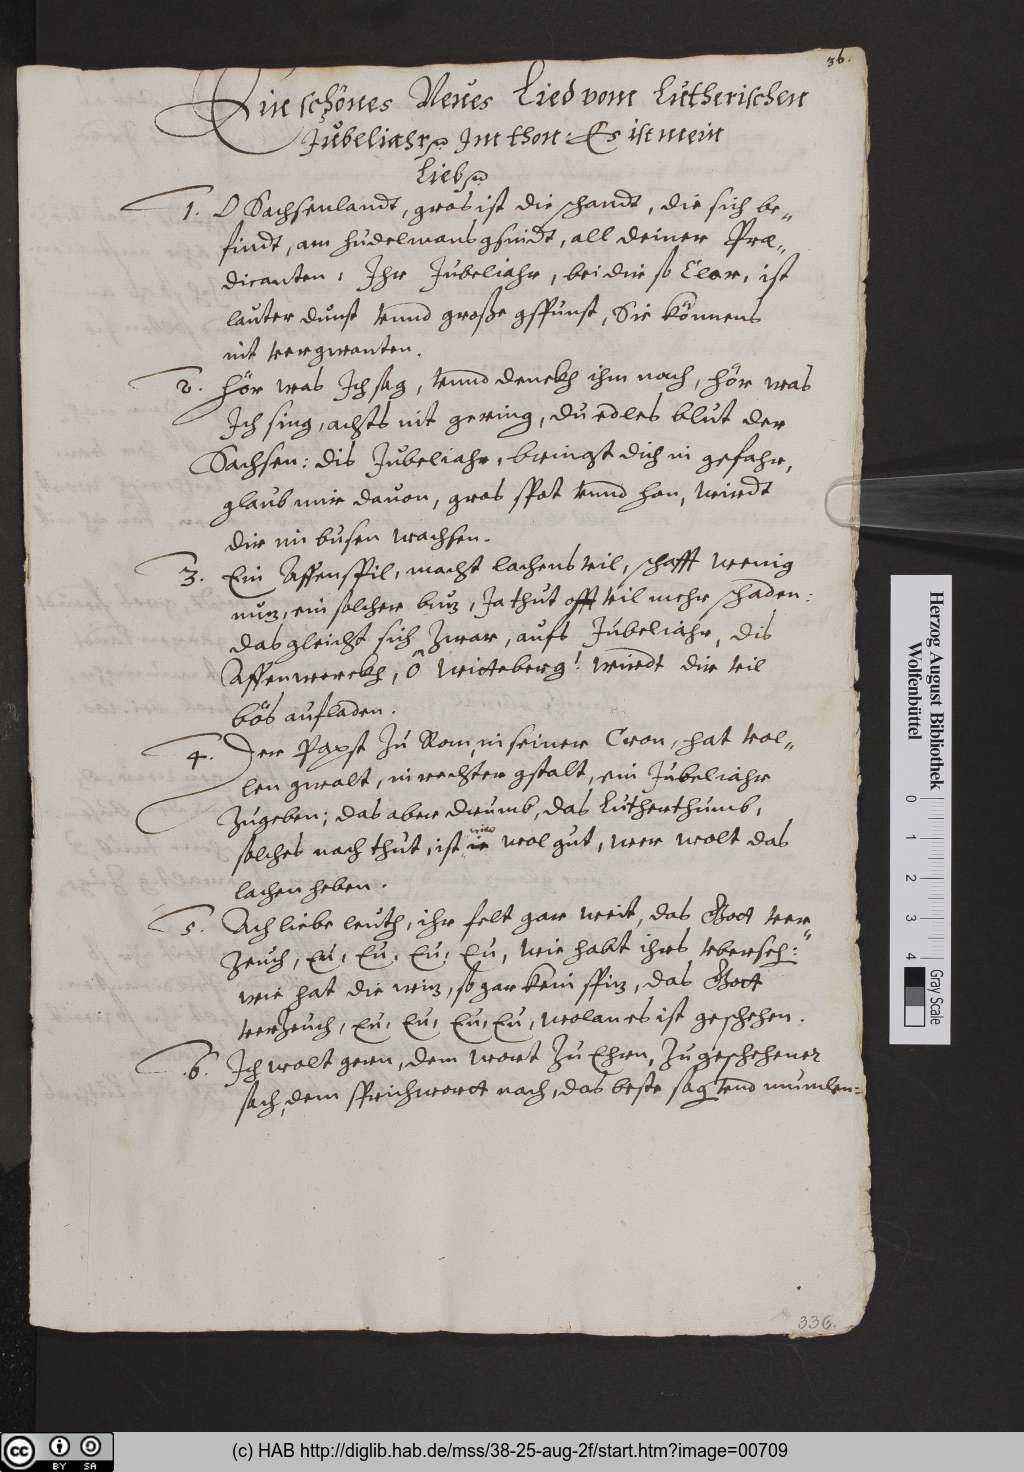 36.
Ein schönes Neues Lied vom Lutherischen
Jubeliahr Im thon: Es ist mein
Lieb
1. O Sachsenlandt, gros ist die schandt, die sich be„
findt, am hudelmans gsindt, all deiner Præ„
dicanten: Ihr Jubeliahr, bei dir so Clar, ist
lauter dunst vnnd große gspunst, Sie können
nit vergwanten.
2. Hör was Ich sag, vnnd denckh ihm nach, hör was
Ich sing, achts nit gering, du edles blut der
Sachsen: dis Jubeliahr, bringst dich in gefahr,
glaub mir dauon, gros spot vnnd hon, wirdt
dir im busen wachsen.
3. Ein Affenspil, macht lachens vil, schafft wenig
nuz, ein solcher buz, Ja thut offt vil mehr schaden:
das gleicht sich zwar, aufs Jubeliahr, dis
Affenwerckh, ô witeberg! wirdt dir vil
bös aufladen.
4. Der Papst zu Rom, in seiner Cron, hat vol„
len gwalt, in rechter gstalt, ein Jubeliahr
zugeben; das aber drumb, das Lutherthumb,
solches nach thut, ist nie wol gut, wer wolt das
lachen heben.
5. Ach liebe leuth, ihr felt gar weit, das Gott ver
zeuch, Eu, Eu, Eu, Eu, wie habt ihrs vberseh:„
wie hat die wiz, so gar kein spiz, das Gott
verzeuch, Eu, Eu, Eu, Eu, wolan es ist geschehen.
6. Ich wolt gern, dem wort zu Ehrn, zu geschehener
sach, dem sprichwort nach, das beste sag vnd mumlen=
336.
Herzog August Bibliothek
Wolfenbüttel
0 1 2 3 4
Gray Scale
cc BY SA
(c) HAB http://diglib.hab.de/mss/38-25-aug-2f/start.htm?image=00709